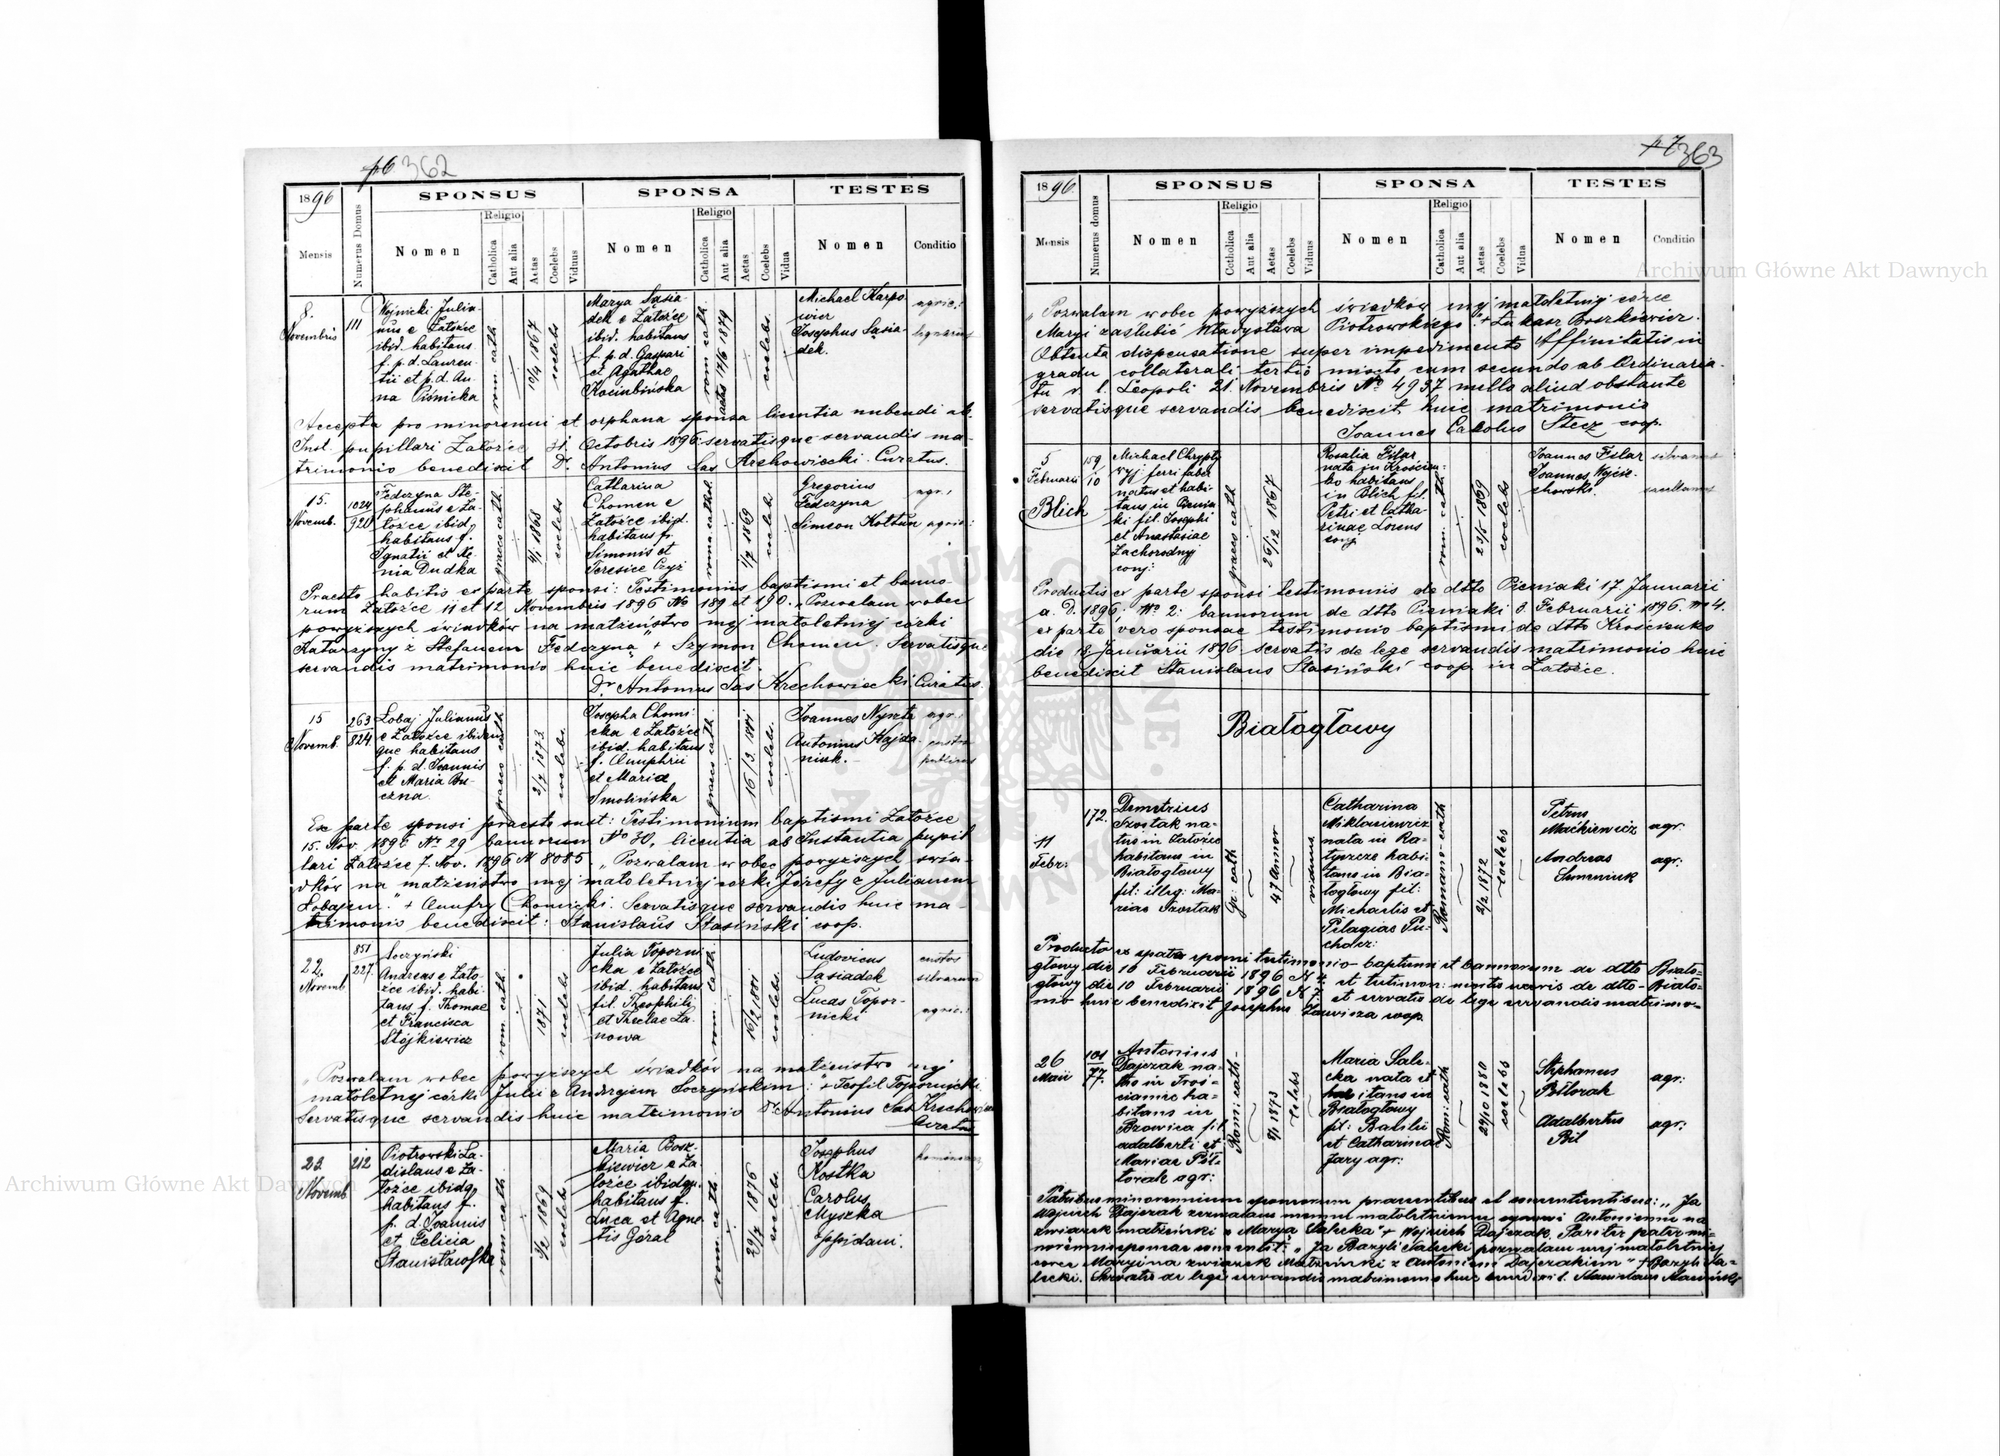 362
1896
SPONSUS
SPONSA
TESTES
Mensis
Numerus Domus
Nomen
Religio
Catholica
Aut alia
Aetas
Coelebs
Viduus
Nomen
Religio
Catholica
Aut alia
Aetas
Coelebs
Vidua
Nomen
Conditio
8.
Novembris
111
Wojnicki Julia-
nus e Załoźce
ibid. habitans
f. p. d. Lauren-
tii et p. d. An-
na
rom. cath.
10/4 1867
coelebs
Marya Sąsia-
dek e Załoźce
ibid. habitans
f. p. d. Gaspari
et Agathae
rom. cath.
1879
coelebs.
Michael Karpo-
wicz
Josephus Sąsia-
dek.
agric.:
Accepta pro minorenni et orphana sponsa licentia nubendi ab
Inst. pupillari Załoźce 31. Octobris 1896 servatisque servandis ma-
trimonio benedixit Dr. Antonius Sas Krechowiecki. Curatus.
15.
Novemb.
1024
920
Fedczyna Ste-
phanus e Za-
łoźce ibid.
habitans f.
Ignatii et Xe-
nia Dudka
graeco cath.
4/1 1868
coelebs
Catharina
Chomen e
Załoźce ibid.
habitans f.
Simonis et
Teresiae Czyż
1/7 1869
coelebs
Gregorius
Fedczyna
Simeon Kołtun
agr.,
agric.:
Praesto habitis ex parte sponsi: Testimoniis baptismi et banno-
rum Załoźce 11 et 12 Novembris 1896 No 189 et 190. „Pozwalam wobec
powyższych świadków na małżeństwo mej małoletniej córki
Katarzyny z Stefanem Fedczyną" + Szymon Chomen. Servatisque
servandis matrimonio huic benedixit.
Dr Antonius Sas Krechowiecki. Curatus.
15
Novemb.
263
824
Łobaj Julianus
e Załoźce ibidem
que habitans
f. p. d. Joannis
et Maria Bu-
czna.
graeco cath
2/7 1873.
coelebs.
Josepha Chomi-
cka e Załoźce
ibid. habitans
f. Onuphrii
et Maria
Smolińska
graeco cath
16/3. 1881
coelebs.
Joannes Nyszta
Antonius Hajda-
niuk.
agr.:
Ex parte sponsi praesto sunt: Testimonium baptismi Załoźce
15. Nov. 1896 No 29 bannorum No 30, licentia ab Instantia pupil-
lari Załoźce 7. Nov. 1896 N 8085. „Pozwalam wobec powyższych świa-
dków na małżeństwo mej małoletniej córki Józefy z Julianem
Łobajem." + Onufry Chomicki. Servatisque servandis huic ma-
trimonio benedixit: Stanislaus Stasiński coop.
22
Novemb
851
227.
Soczyński
Andreas e Zało-
źce ibid. habi-
tans f. Thomae
et Francisca
Stojkiewicz
rom. cath.
1871
coelebs
Julia Toporni-
cka e Załoźce
ibid. habitans
fil. Theophili
et Theclae Ła-
nowa
rom. cath
16/9 1881.
coelebs.
Ludovicus
Sąsiadek
Lucas Topor-
nicki
custos
silvarum
agric.:
„Pozwalam wobec powyższych świadków na małżeństwo mej
małoletniej córki Julii z Andrzejem Soczyńskim": + Teofil Topornicki.
Servatisque servandis huic matrimonio Dr Antonius Sas Krechowie
Curatus
22
Novemb
212
Piotrowski La-
dislaus e Za-
łoźce ibidq.
habitans f.
p. d. Joannis
et Felicia
Stanisławska
rom. cath.
2/2 1869
coelebs
Maria Bosz-
kiewicz e Za-
łoźce ibidq.
habitans f.
Luca et Agne-
tis Góral
rom. cath.
29/7 1876
coelebs
Josephus
Kostka
Carolus
Myszka
oppidani.
363
1896.
SPONSUS
SPONSA
TESTES
Mensis
Numerus domus
Nomen
Religio
Catholica
Aut alia
Aetas
Coelebs
Viduus
Nomen
Religio
Catholica
Aut alia
Aetas
Coelebs
Vidua
Nomen
Conditio
„Pozwalam wobec powyższych świadków mej małoletniej córce
Maryi zaślubić Władysława Piotrowskiego." + Łukasz Boszkiewicz.
Obtenta dispensatione super impedimento Affinitatis in
gradu collaterali tertio mixto cum secundo ab Ordinaria-
tu r. l. Leopoli 21. Novembris No 4937 nullo aliud obstante
servatisque servandis benedixit huic matrimonio
Joannes Carolus Stecz coop.
5
Februarii
159
10
Blich
Michael Chrypty-
wyj ferri faber
natus et habi-
tans in Pienia-
ki fil. Josephi
et Anastasiae
Zachorodnyj
conj:
graeco cath
26/12 1867
Rosalia Filar
nata in Krościen-
ko habitans
in Blich fil.
Petri et Catha-
rinae Lorens
conj.
rom. cath
23/5 1869
coelebs
Joannes Filar
Joannes Wojcie-
chowski.
silvanus
Productis ex parte sponsi testimoniis de dtto Pieniaki 17. Januarii
a. D. 1896, No 2: bannorum de dtto Pieniaki 3. Februarii 1896. No 4.
ex parte vero sponsae testimonio baptismi de dtto Krościenko
die 18 Januarii 1896 servatis de lege servandis matrimonio huic
benedixit Stanislaus Stasiński coop. in Załoźce.
Białogłowy
11
Febr:
172.
Demetrius
Szostak na-
tus in Załoźce
habitans in
Białogłowy
fil: illeg: Ma-
riae Szostak
Gr: cath
47 annor
viduus
Catharina
Miklasiewicz
nata in Ra-
tyszcze habi-
tans in Bia-
łogłowy fil:
Michaelis et
Pelagiae Pu-
chacz:
Romano-cath
2/2 1872
coelebs
Petrus
Maćkiewicz
Andreas
Semeniuk
agr:
agr:
Producto ex parte sponsi testimonio baptismi et bannorum de dtto Biało-
głowy die 10 Februarii 1896 N 4. et testimon: mortis uxoris de dtto Biało-
głowy die 10 Februarii 1896 N 7. et servatis de lege servandis matrimo-
nio huic benedixit Josephus Zawisza coop.
26
Maii
101
77.
Antonius
Dajczak na-
tus in Troś-
cianiec ha-
bitans in
Bzowica fil.
adalberti et
Mariae Pół-
torak agr:
Rom: cath-
3/1 1873
celebs
Maria Sale-
cka nata et
habitans in
Białogłowy
fil: Basilii
et Catharinae
Jary agr:
Rom: cath
29/10 1880
coelebs
Stephanus
Półtorak
Adalbertus
Bil
agr:
agr:
Patribus minorennium sponsorum praesentibus et consentientibus: „Ja
Wojciech Dajczak zezwalam memu małoletniemu synowi Antoniemu na
związek małżeński z Maryą Salecką" + Wojciech Dajczak. Pariter pater mi-
norennis sponsae consentit: „Ja Bazyli Salecki pozwalam mej małoletniej
córce Maryi na związek Małżeński z Antonim Dajczakiem" + Bazyli Sa-
lecki. Servatis de lege servandis matrimonio huic benedixit. Stanislaus Stasiński
Archiwum Główne Akt Dawnych
Archiwum Główne Akt Dawnych